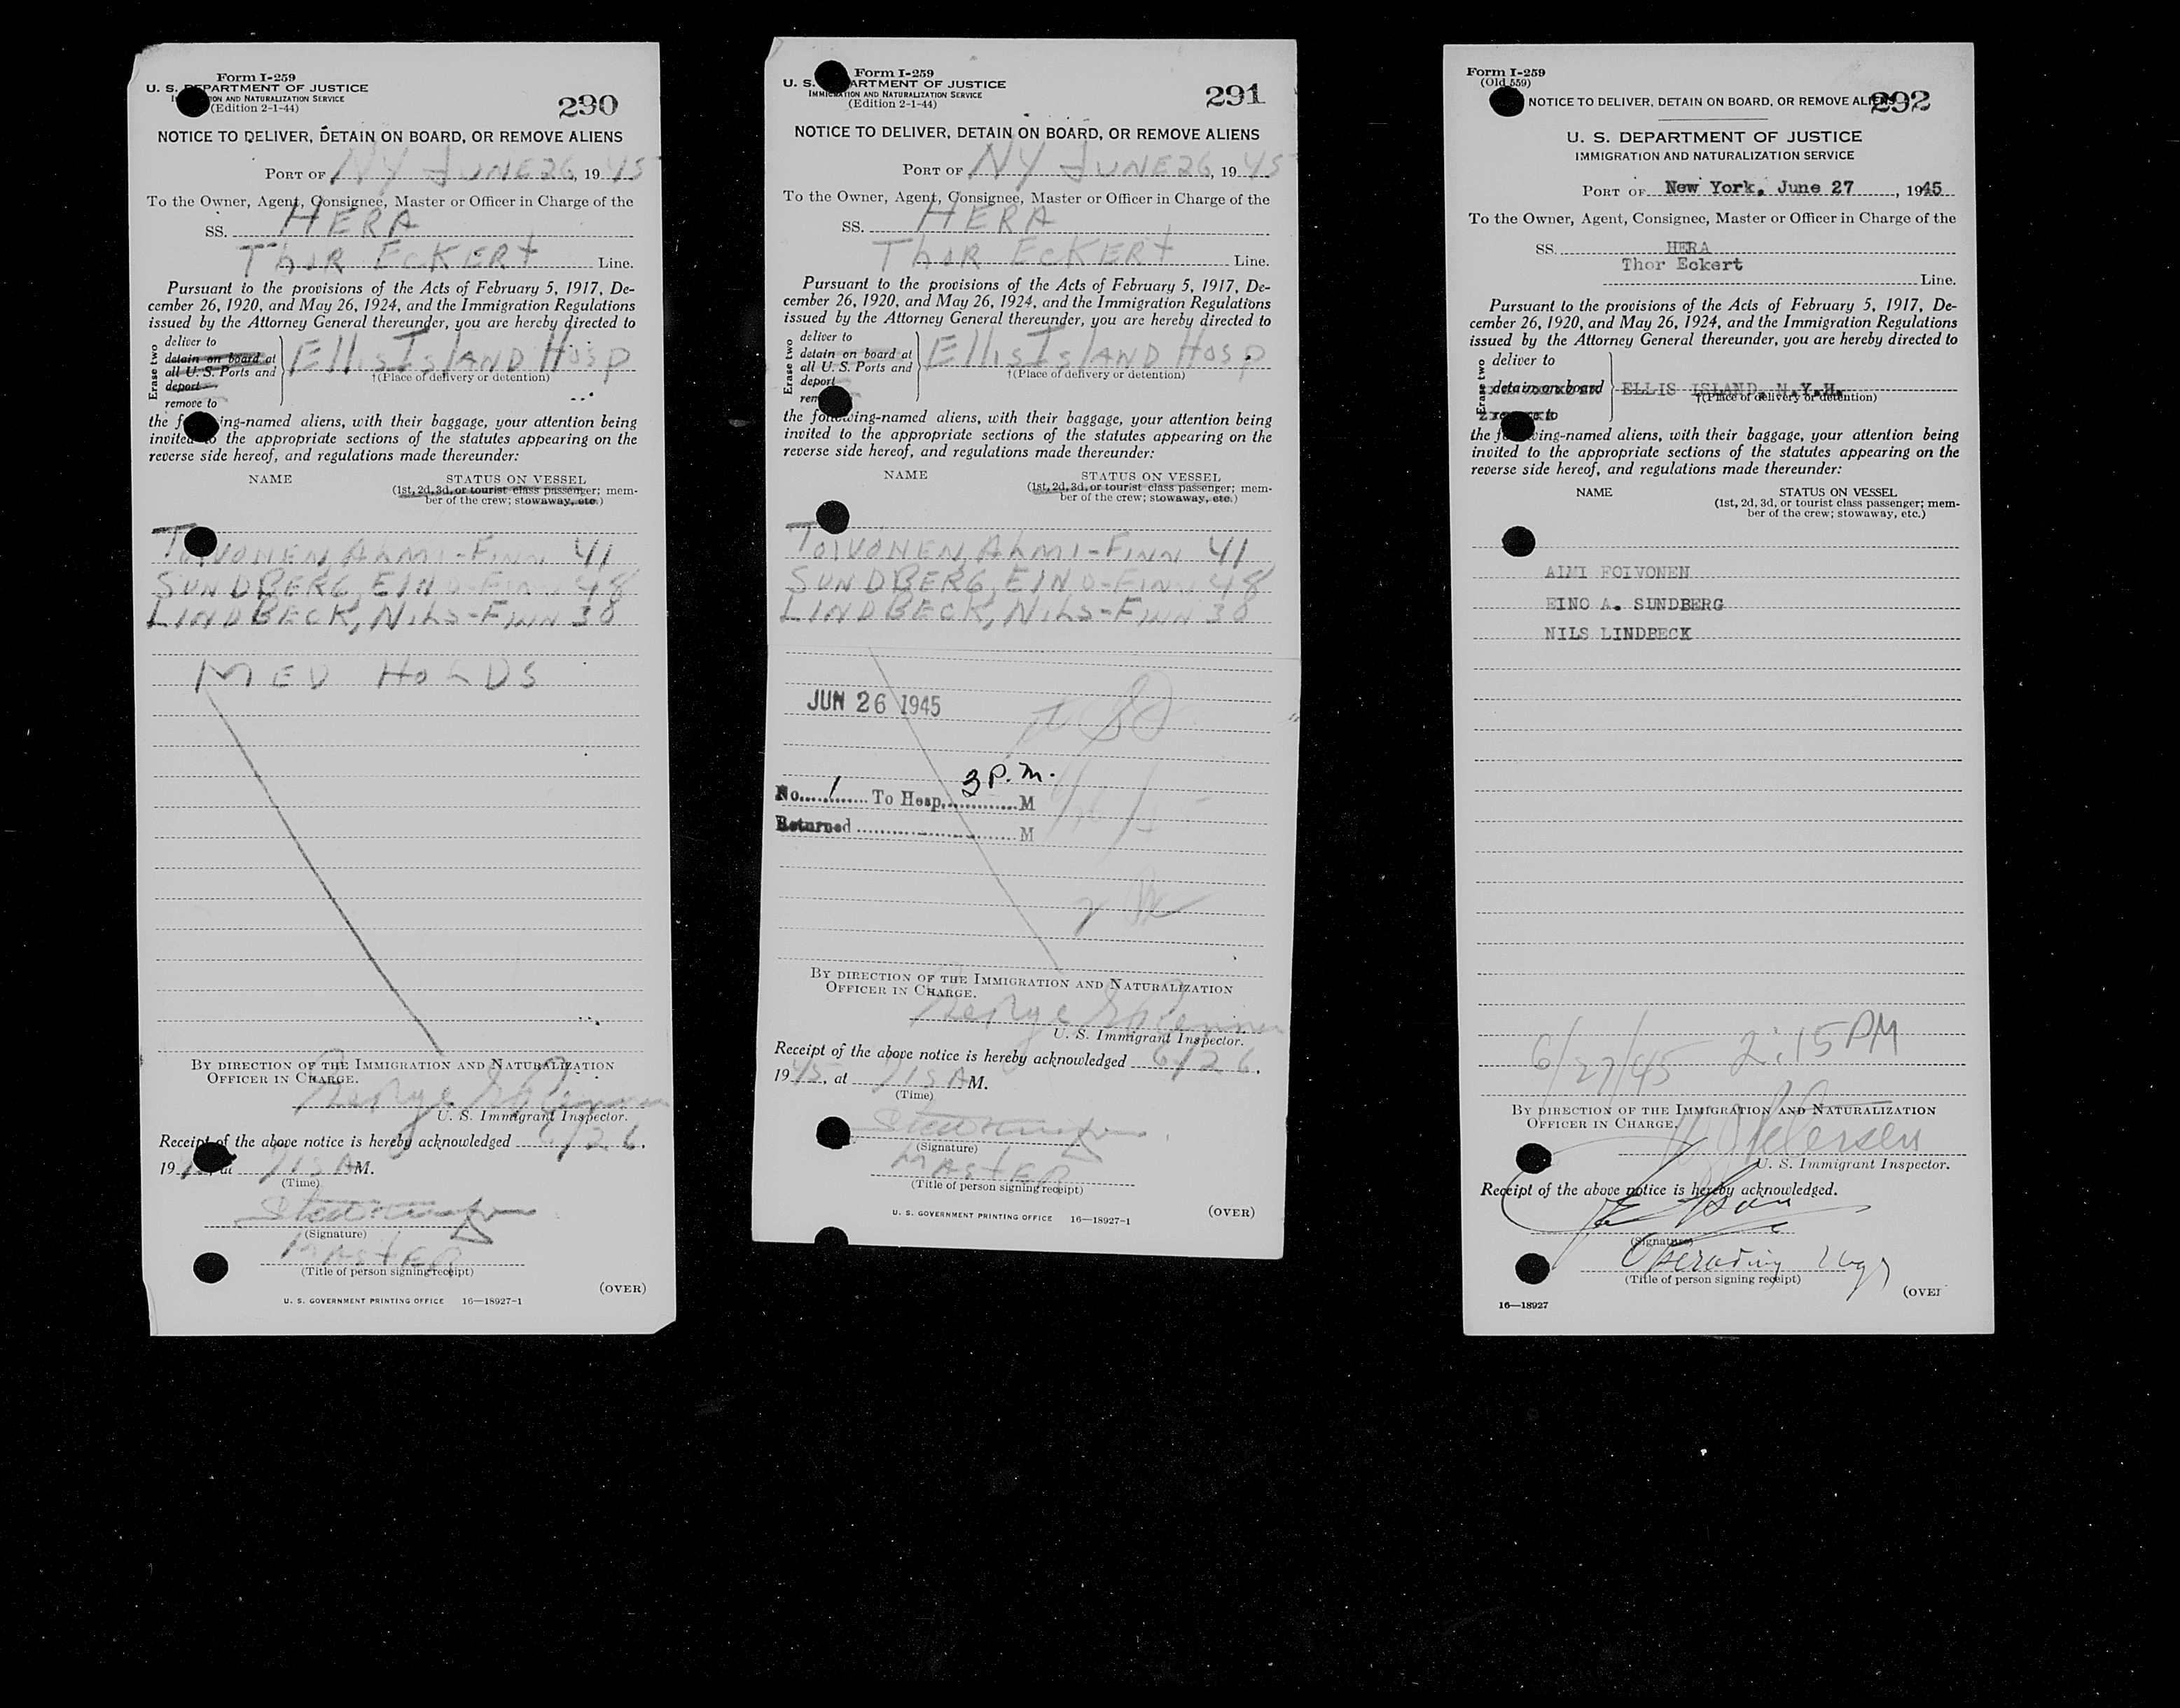 Form I-259
U. S. DEPARTMENT OF JUSTICE
ION AND NATURALIZATION SERVICE
(Edition 2-1-44)
290
NOTICE TO DELIVER, DETAIN ON BOARD, OR REMOVE ALIENS
PORT OF NY JUNE 26, 1945
To the Owner, Agent, Consignee, Master or Officer in Charge of the
SS. HERA
Thor Eckert Line.
Pursuant to the provisions of the Acts of February 5, 1917, De-
cember 26, 1920, and May 26, 1924, and the Immigration Regulations
issued by the Attorney General thereunder, you are hereby directed to
Erase two
deliver to
detain on board at
all U. S. Ports and
deport
remove to
Ellis Island Hosp
†(Place of delivery or detention)
the f ing-named aliens, with their baggage, your attention being
invited to the appropriate sections of the statutes appearing on the
reverse side hereof, and regulations made thereunder:
NAME STATUS ON VESSEL
(1st, 2d, 3d, or tourist class passenger; mem-
ber of the crew; stowaway, etc.)
TOIVONEN, ALMI - FINN 41
SUNDBERG, EINO - FINN 48
LINDBECK, NILS - FINN 38
MED HOLDS
BY DIRECTION OF THE IMMIGRATION AND NATURALIZATION
OFFICER IN CHARGE.
George
U. S. Immigrant Inspector.
Receipt of the above notice is hereby acknowledged 6/26,
19 at 715 AM.
(Time)
(Signature)
MASTER
(Title of person signing receipt)
(OVER)
U. S. GOVERNMENT PRINTING OFFICE 16—18927-1
Form I-259
U. S. ARTMENT OF JUSTICE
IMMIGRATION AND NATURALIZATION SERVICE
(Edition 2-1-44)
291
NOTICE TO DELIVER, DETAIN ON BOARD, OR REMOVE ALIENS
PORT OF NY JUNE 26, 1945
To the Owner, Agent, Consignee, Master or Officer in Charge of the
SS. HERA
Thor Eckert Line.
Pursuant to the provisions of the Acts of February 5, 1917, De-
cember 26, 1920, and May 26, 1924, and the Immigration Regulations
issued by the Attorney General thereunder, you are hereby directed to
Erase two
deliver to
detain on board at
all U. S. Ports and
deport
rem
Ellis Island Hosp
†(Place of delivery or detention)
the following-named aliens, with their baggage, your attention being
invited to the appropriate sections of the statutes appearing on the
reverse side hereof, and regulations made thereunder:
NAME STATUS ON VESSEL
(1st, 2d, 3d, or tourist class passenger; mem-
ber of the crew; stowaway, etc.)
TOIVONEN, ALMI - FINN 41
SUNDBERG, EINO - FINN 48
LINDBECK, NILS - FINN 38
JUN 26 1945
3 P. m.
No. 1 To Hosp. M
Returned M
BY DIRECTION OF THE IMMIGRATION AND NATURALIZATION
OFFICER IN CHARGE.
George
U. S. Immigrant Inspector.
Receipt of the above notice is hereby acknowledged 6/26,
1945, at 715 AM.
(Time)
(Signature)
MASTER
(Title of person signing receipt)
U. S. GOVERNMENT PRINTING OFFICE 16—18927-1
(OVER)
Form I-259
(Old 559)
NOTICE TO DELIVER, DETAIN ON BOARD, OR REMOVE ALIENS
292
U. S. DEPARTMENT OF JUSTICE
IMMIGRATION AND NATURALIZATION SERVICE
PORT OF New York, June 27, 1945
To the Owner, Agent, Consignee, Master or Officer in Charge of the
SS. HERA
Thor Eckert
Line.
Pursuant to the provisions of the Acts of February 5, 1917, De-
cember 26, 1920, and May 26, 1924, and the Immigration Regulations
issued by the Attorney General thereunder, you are hereby directed to
Erase two
deliver to
detain on board
remove to
ELLIS ISLAND, N.Y.H.
†(Place of delivery or detention)
the following-named aliens, with their baggage, your attention being
invited to the appropriate sections of the statutes appearing on the
reverse side hereof, and regulations made thereunder:
NAME STATUS ON VESSEL
(1st, 2d, 3d, or tourist class passenger; mem-
ber of the crew; stowaway, etc.)
ALMI FOIVONEN
EINO A. SUNDBERG
NILS LINDBECK
6/27/45 2:15 PM
BY DIRECTION OF THE IMMIGRATION AND NATURALIZATION
OFFICER IN CHARGE.
Petersen
U. S. Immigrant Inspector.
Receipt of the above notice is hereby acknowledged.
(Signature)
Operating Mgr
(Title of person signing receipt)
(OVER
16—18927